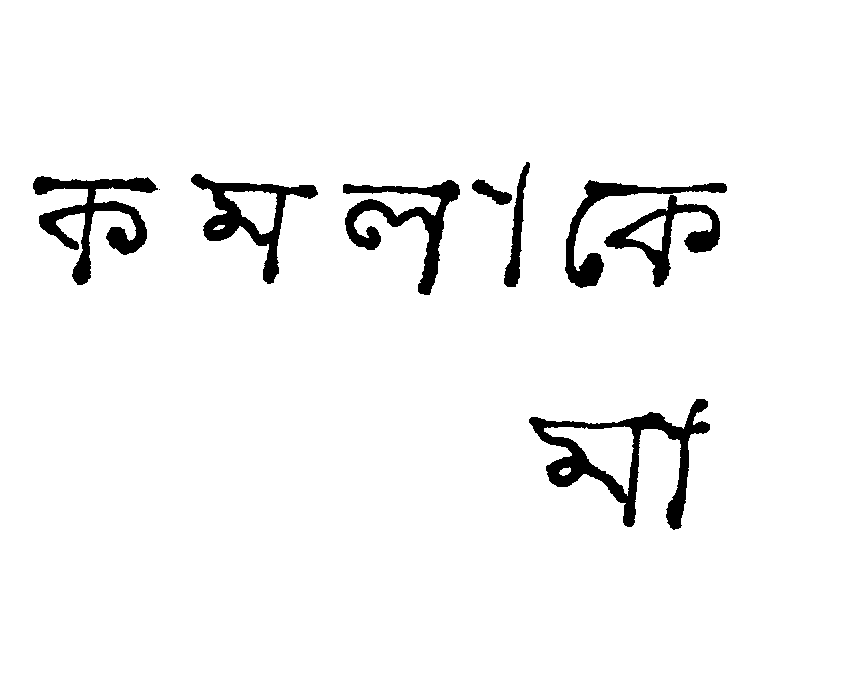 কমলাকে
মা